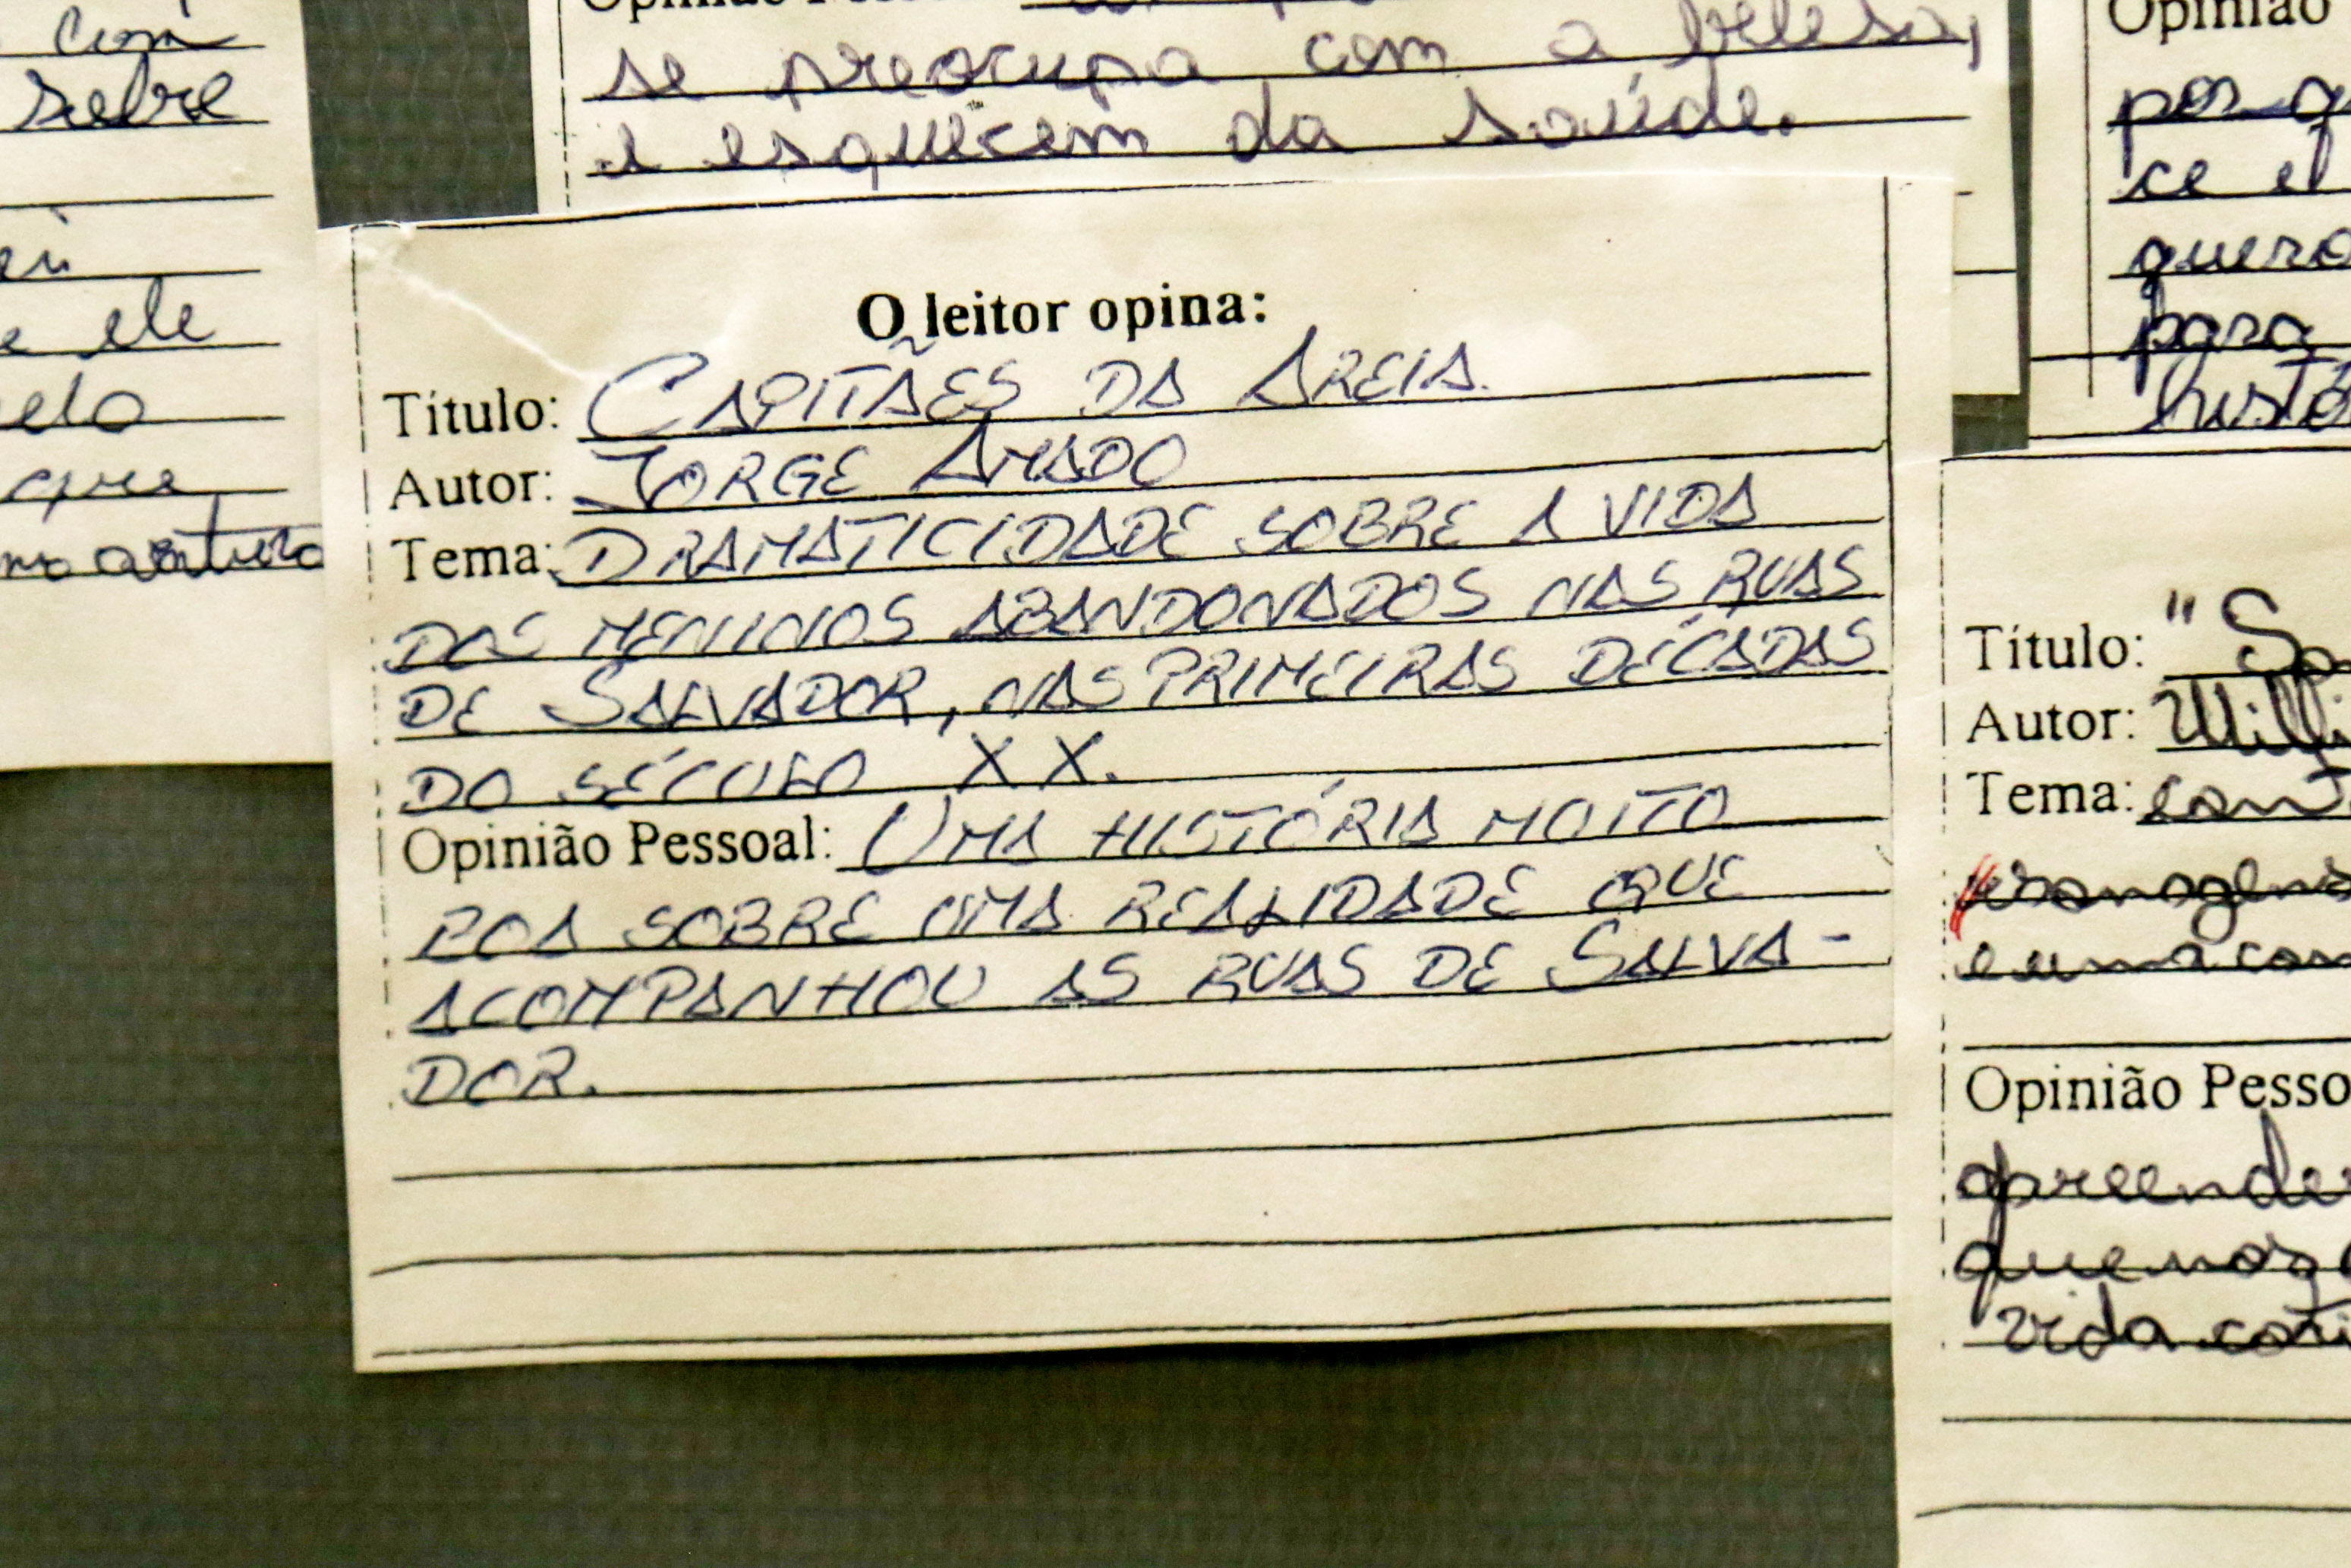 com
sobre
ele
que
se preocupa com a belesa,
e esquecem da saúde.
Opinião
para
O leitor opina:
Título: CAPITÃES DA AREIA.
Autor: JORGE AMADO
Tema: DRAMATICIDADE SOBRE A VIDA
DOS MENINOS ABANDONADOS NAS RUAS
DE SALVADOR, NAS PRIMEIRAS DÉCADAS
DO SÉCULO XX.
Opinião Pessoal: UMA HISTÓRIA MUITO
BOA SOBRE UMA REALIDADE QUE
ACOMPANHOU AS RUAS DE SALVA-
DOR.
Título:
Autor:
Tema:
Opinião Pesso
vida